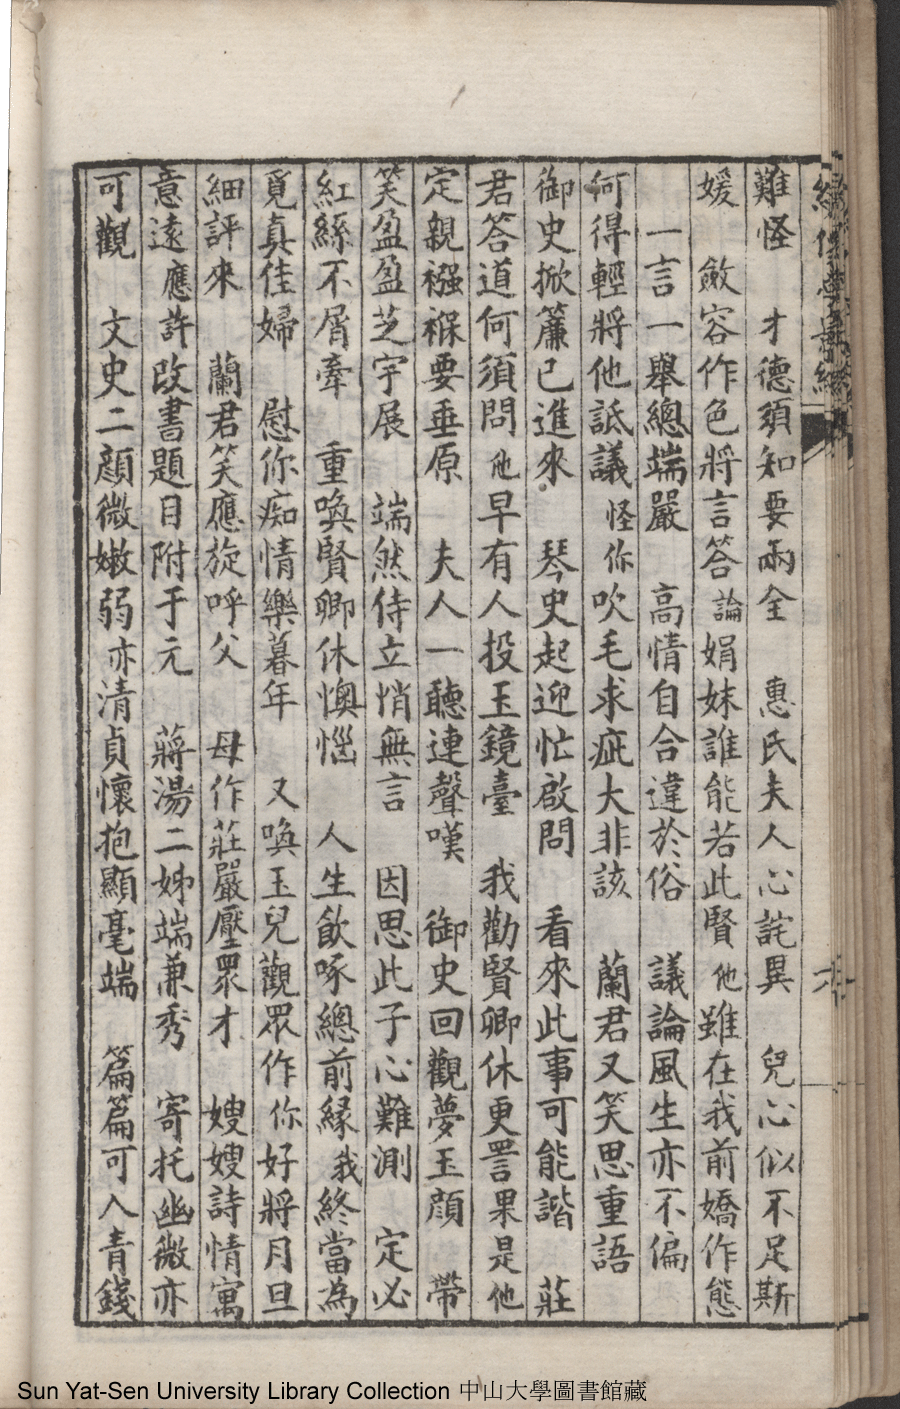 難怪　才德須知要兩全　惠氏夫人心詫異　兒心似不足斯
媛　斂容作色將言答論娟妹誰能若此賢他雖在我前嬌作態
一言一舉總端嚴　高情自合違於俗　議論風生亦不偏
何得輕將他詆議怪你吹毛求疵大非該　蘭君又笑思重語
御史掀簾已進來　琴史起迎忙啟問　看來此事可能諧　莊
君答道何須問他早有人投玉鏡臺　我勸賢卿休更詈果是他
定親襁褓要垂原　夫人一聽連聲嘆　御史回觀夢玉顏　帶
笑盈盈芝宇展　端然侍立悄無言　因思此子心難測　定必
紅絲不屑牽　重喚賢卿休懊惱　人生飲啄總前緣我終當為
覓真佳婦　慰你痴情樂暮年　又喚玉兒觀眾作你好將月旦
細評來　蘭君笑應旋呼父　母作莊嚴壓眾才　嫂嫂詩情寓
意遠應許改書題目附于元　蔣湯二姊端兼秀　寄托幽微亦
可觀　文史二顏微嫩弱亦清貞懷抱顯毫端　篇篇可入青錢
Sun Yat-Sen University Library Collection 中山大學圖書館藏